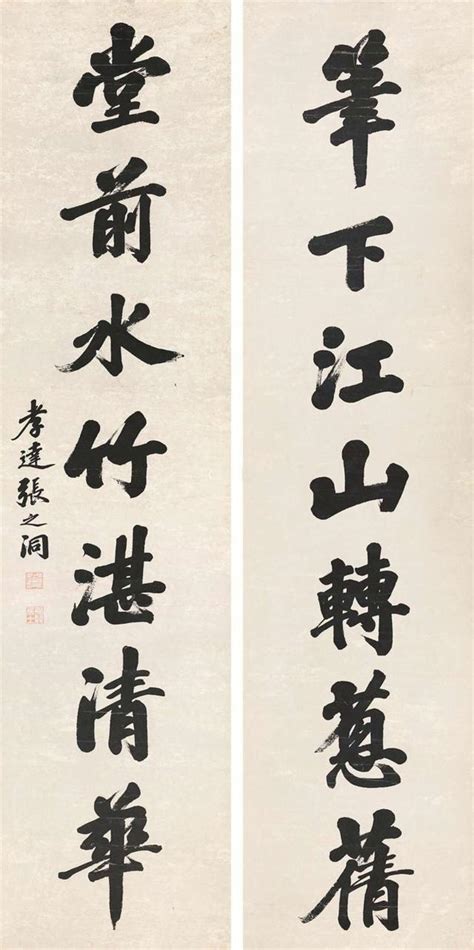 筆下江山轉葱蒨
堂前水竹湛清華
孝達張之洞